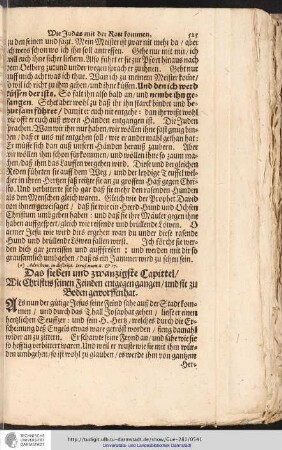 Wie Judas mit der Rott kommen. 525
zu den seinen und sagt. Mein Meister ist zwar nit mehr da / aber
ich weiß schon wo ich ihn soll antreffen. Gehe nur mit mir / ich
will euch ihn sicher liefern. Also führt er sie zur Pfort hinauß nach
dem Oelberg zu: und under wegen sprach er zu ihnen. Gebt nur
auff mich acht was ich thue. Wan ich zu meinem Meister komme /
so wil ich recht zu ihm gehen / und ihn küssen. Und den ich werd
küssen der ists. So falt ihn alß bald an / und nembt ihn ge-
fangen. Sehet aber wohl zu daß ihr ihn starck bindet und be-
hutsam führet / damit er euch nit entgehe: dan ihr wißt wohl
wie offt er euch auß ewren Händen entgangen ist. Die Juden
sprachen. Wan wir ihn nur haben / wir wöllen ihn so fast gnug bin-
den / daß er uns nit entgehen soll / wie er andermahls gethan hat:
Er müste sich dan auß unsern Händen herauß zaubern. Aber
wir wöllen ihm schon fürkommen / und wöllen ihn so zaum ma-
chen / daß ihm das Lauffen vergehen wird. Diese und dergleichen
Reden führten sie auff dem Weg / und der leydige Teuffel wel-
cher in ihren Hertzen saß reitzte sie an zu grossem Haß gegen Chri-
sto. Und verbitterte sie so gar daß sie mehr den rasenden Hunden
als den Menschen gleich waren. Gleich wie der Prophet David
von ihnen geweissaget / daß sie wie ein Heerd Hund und Ochsen
Christum umbgeben haben: und daß sie ihre Mäuler gegen ihm
haben auffgesperret / gleich wie reissende und brüllende Löwen. O
armer Jesu wie wird dirs ergehen wan du under diese rasende
Hund und brüllende Löwen fallen wirst. Ich förcht sie wer-
den dich gar zerreissen und auffressen: und werden mit dir so
grausamlich umbgehen / daß es ein Jammer wird zu sehen sein.
Das sieben und zwanzigste Capittel /
Wie Christus seinen Feinden entgegen gangen / und sie zu
Boden geworffen hat.
ALs nun der gütige Jesus seine Feind sahe auß der Stadt kom-
men / und durch das Thall Josaphat gehen / ließ er einen
hertzlichen Seuffzer: und sein H. Hertz / welches durch die Er-
scheinung deß Engels etwas ware getröst worden / fieng damahls
wider an zu zittern. Er schawte seine Feind an / und sahe wie sie
so hefftig verbittert waren. Und weil er wuste wie sie mit ihm wür-
den umbgehen / so ist wohl zu glauben / es werde ihm von gantzem
Her-
TECHNISCHE
UNIVERSITÄT
DARMSTADT
http://tudigit.ulb.tu-darmstadt.de/show/Gue-283/0541
Universitäts- und Landesbibliothek Darmstadt